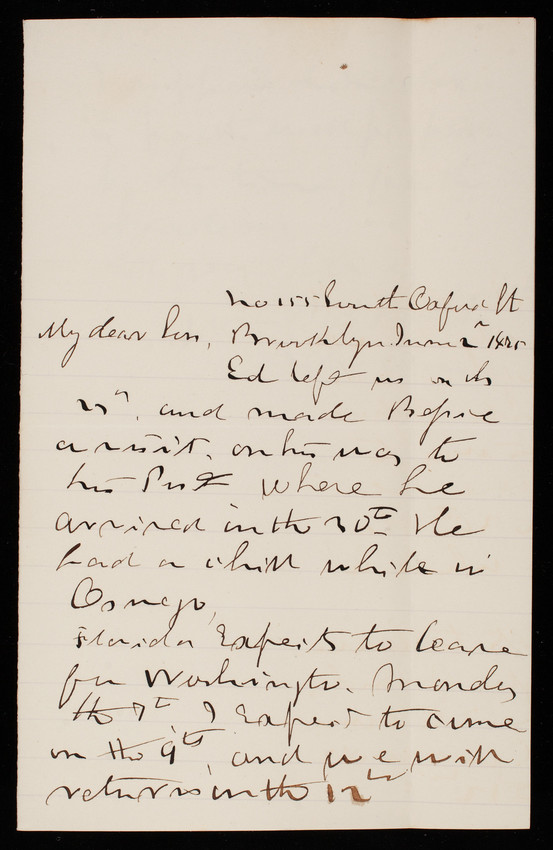 No 155 South Oxford St
Brooklyn June 2ⁿ
My dear Son,
Ed left us on the
and made
a visit, on his way to
his Post where he
arrived on the 30th He
had a chill while in
Oswego,
Florida Expects to leave
for Washington. Monday
the 7th, I Expect to come
on the 9th, and we will
return on the 12th